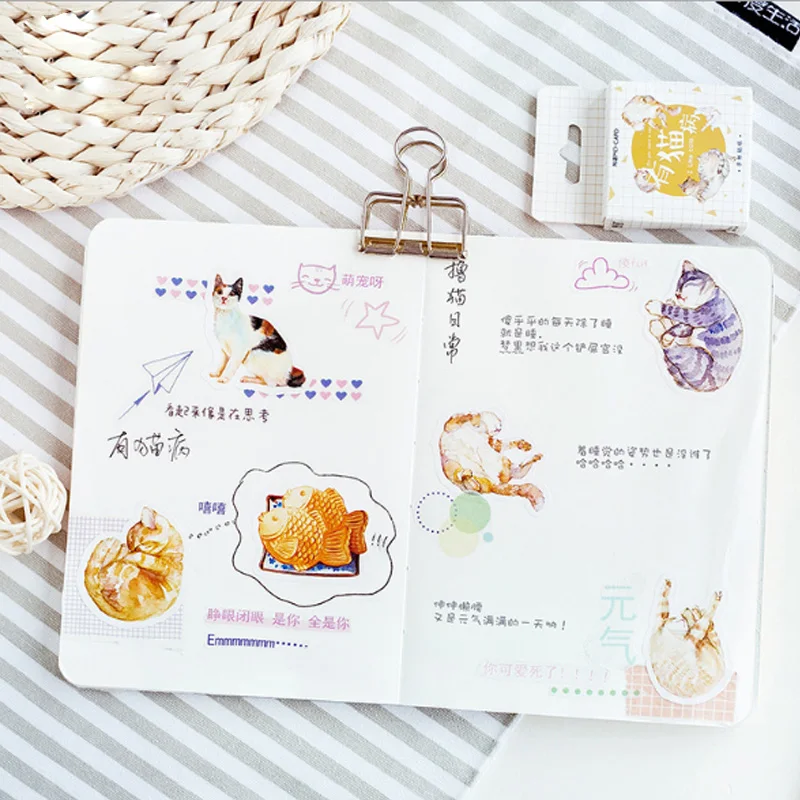 慢生活
有猫病
萌宠呀
看起来像是在思考
有猫病
嘻嘻
!!!
睁眼闭眼 是你 全是你
Emmmmmmm······
撸猫日常
傻乎乎的每天除了睡
就是睡.
梦里想我这个铲屎官没
着睡觉的姿势也是没谁了
哈哈哈哈····
伸伸懒腰
又是元气满满的一天哟！
元气
你可爱死了！！！？